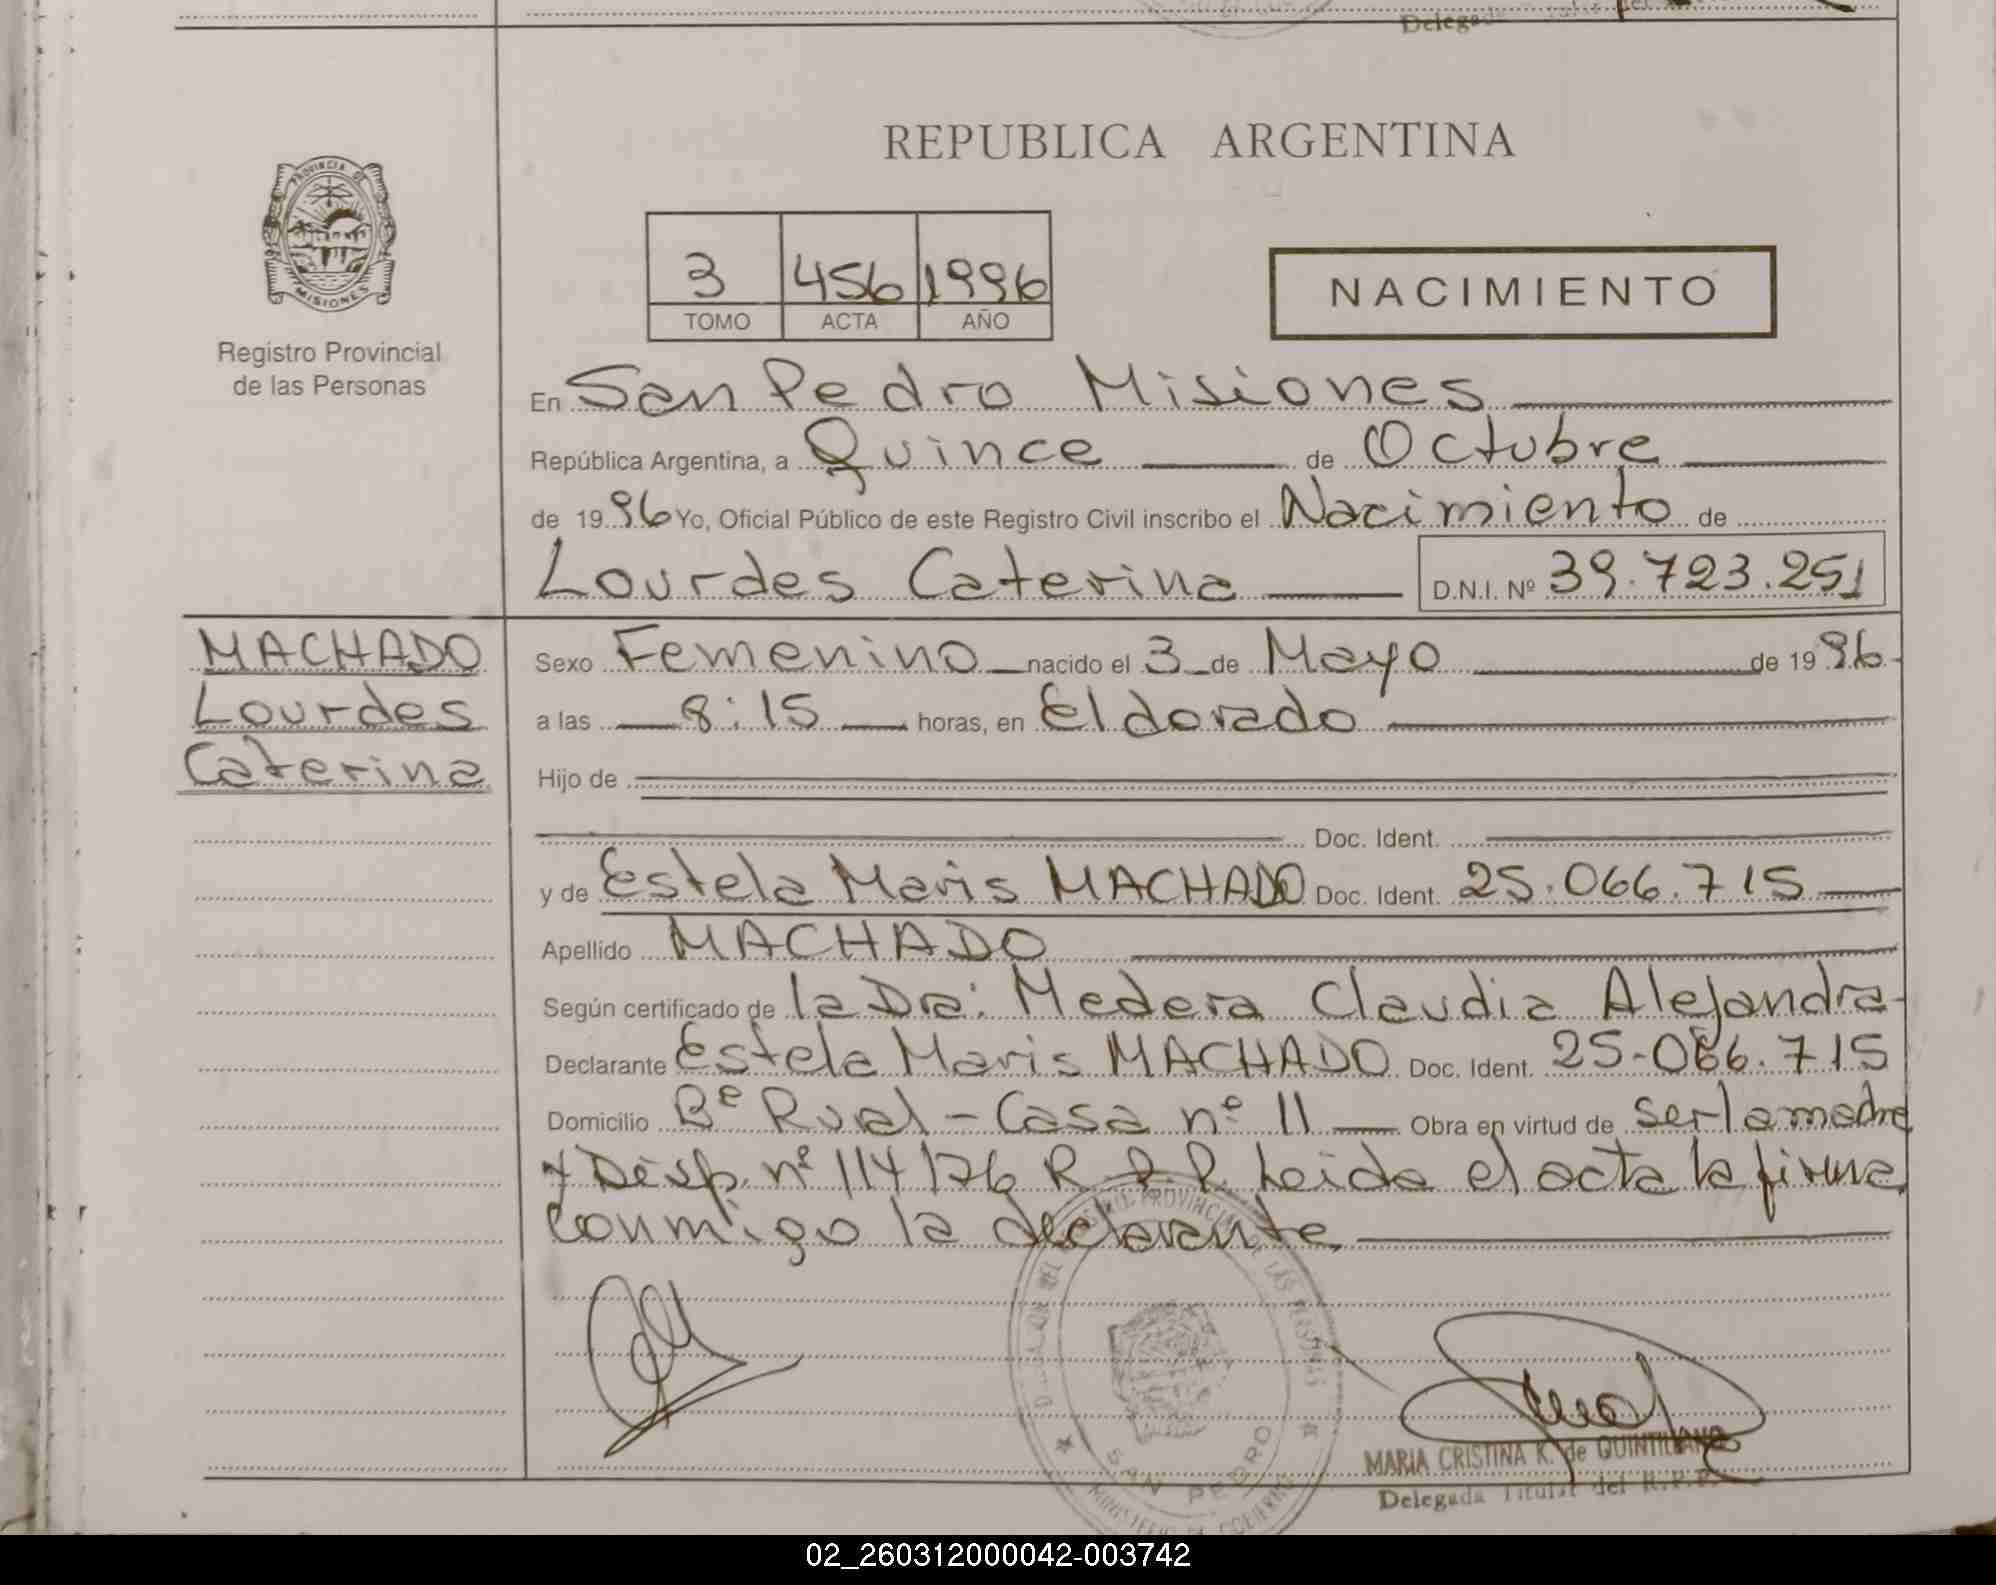 Delegada Titular del
PROVINCIA DE
MISIONES
Registro Provincial
de las Personas
REPUBLICA ARGENTINA
3 456 1996
TOMO ACTA AÑO
NACIMIENTO
En San Pedro Misiones
República Argentina, a Quince de Octubre
de 1996 Yo, Oficial Público de este Registro Civil inscribo el Nacimiento de
Lourdes Caterina D.N.I. Nº 39.723.251
MACHADO
Lourdes
Caterina
Sexo Femenino nacido el 3 de Mayo de 1996
a las 8:15 horas, en Eldorado
Hijo de
Doc. Ident.
y de Estela Maris MACHADO Doc. Ident. 25.066.715
Apellido MACHADO
Según certificado de la Dra: Medera Claudia Alejandra
Declarante Estela Maris MACHADO Doc. Ident. 25-066.715
Domicilio Bº Rural - Casa nº 11 Obra en virtud de ser la madre
y Disp. nº 114/76 R.P.P. Leida el acta la firma
conmigo la declarante
DELEGACION DEL REGISTRO PROVINCIAL DE LAS PERSONAS
SAN PEDRO
MINISTERIO DE GOBIERNO
MARIA CRISTINA K. de QUINTILIANO
Delegada Titular del R.P.P.
02_260312000042-003742